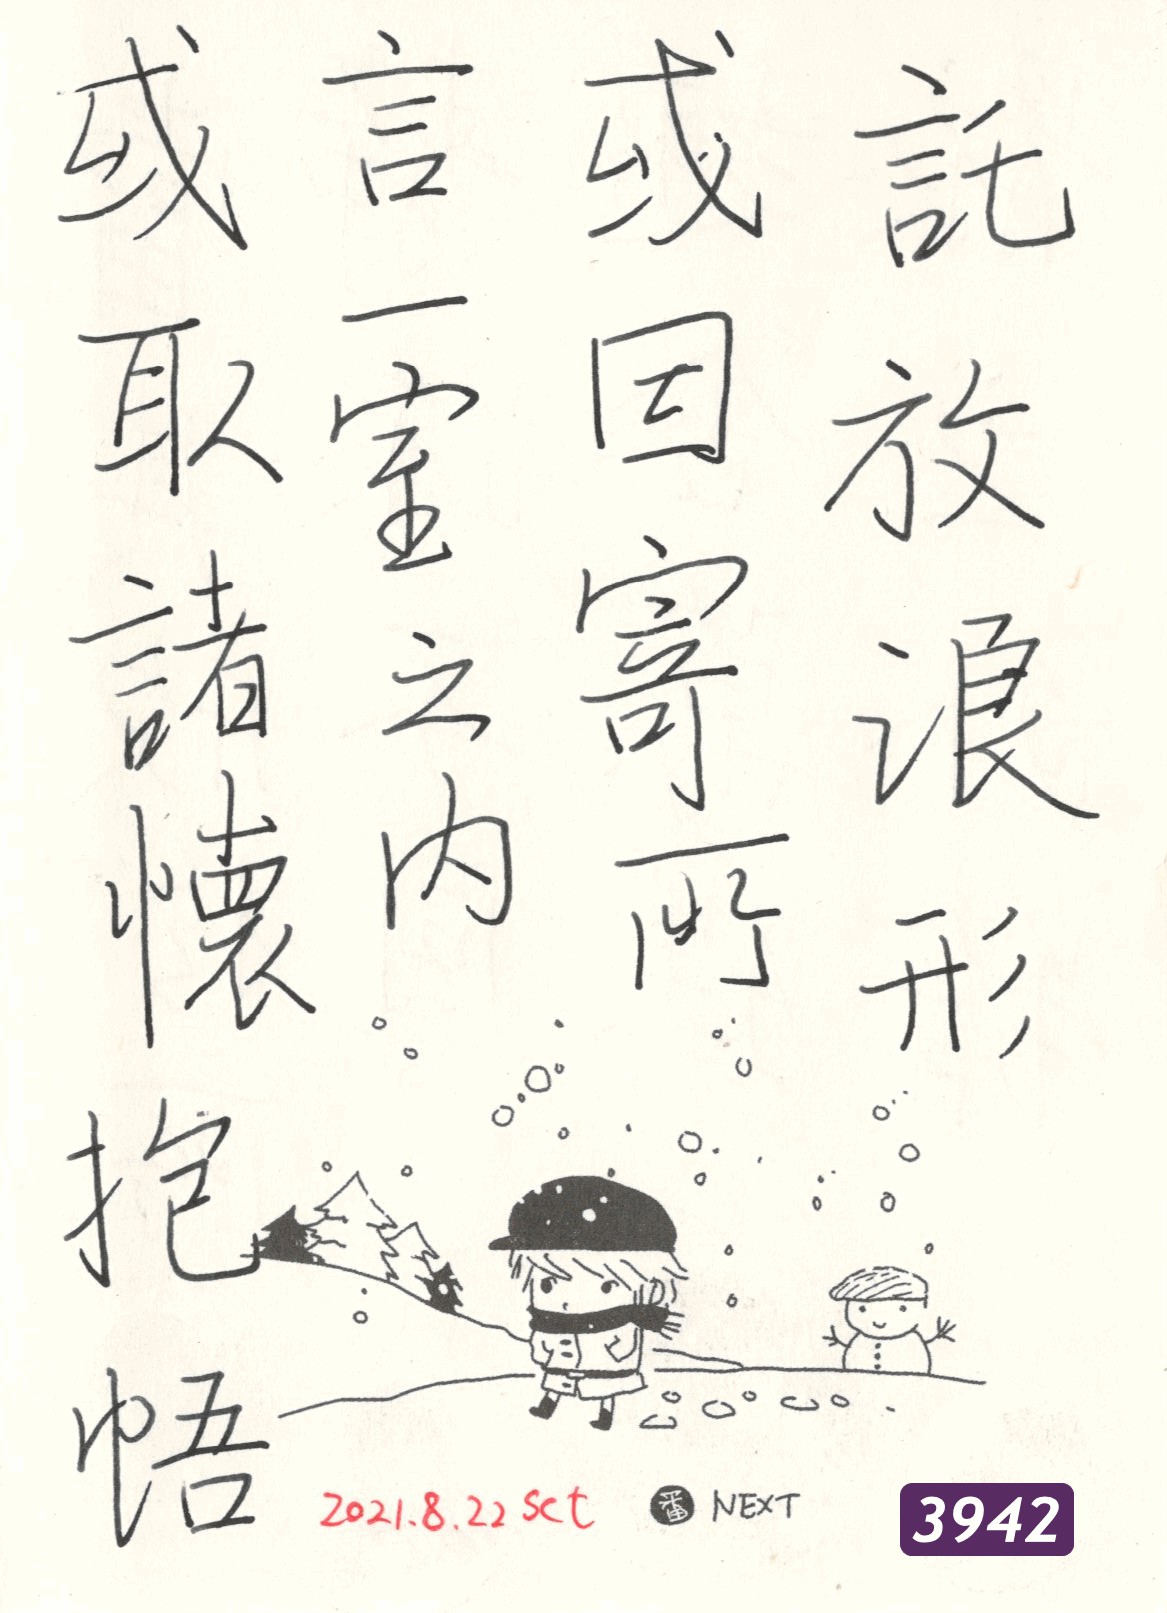 託放浪形
或因寄所
言一室之内
或取諸懷抱悟
2021.8.22 sct
番 NEXT
3942